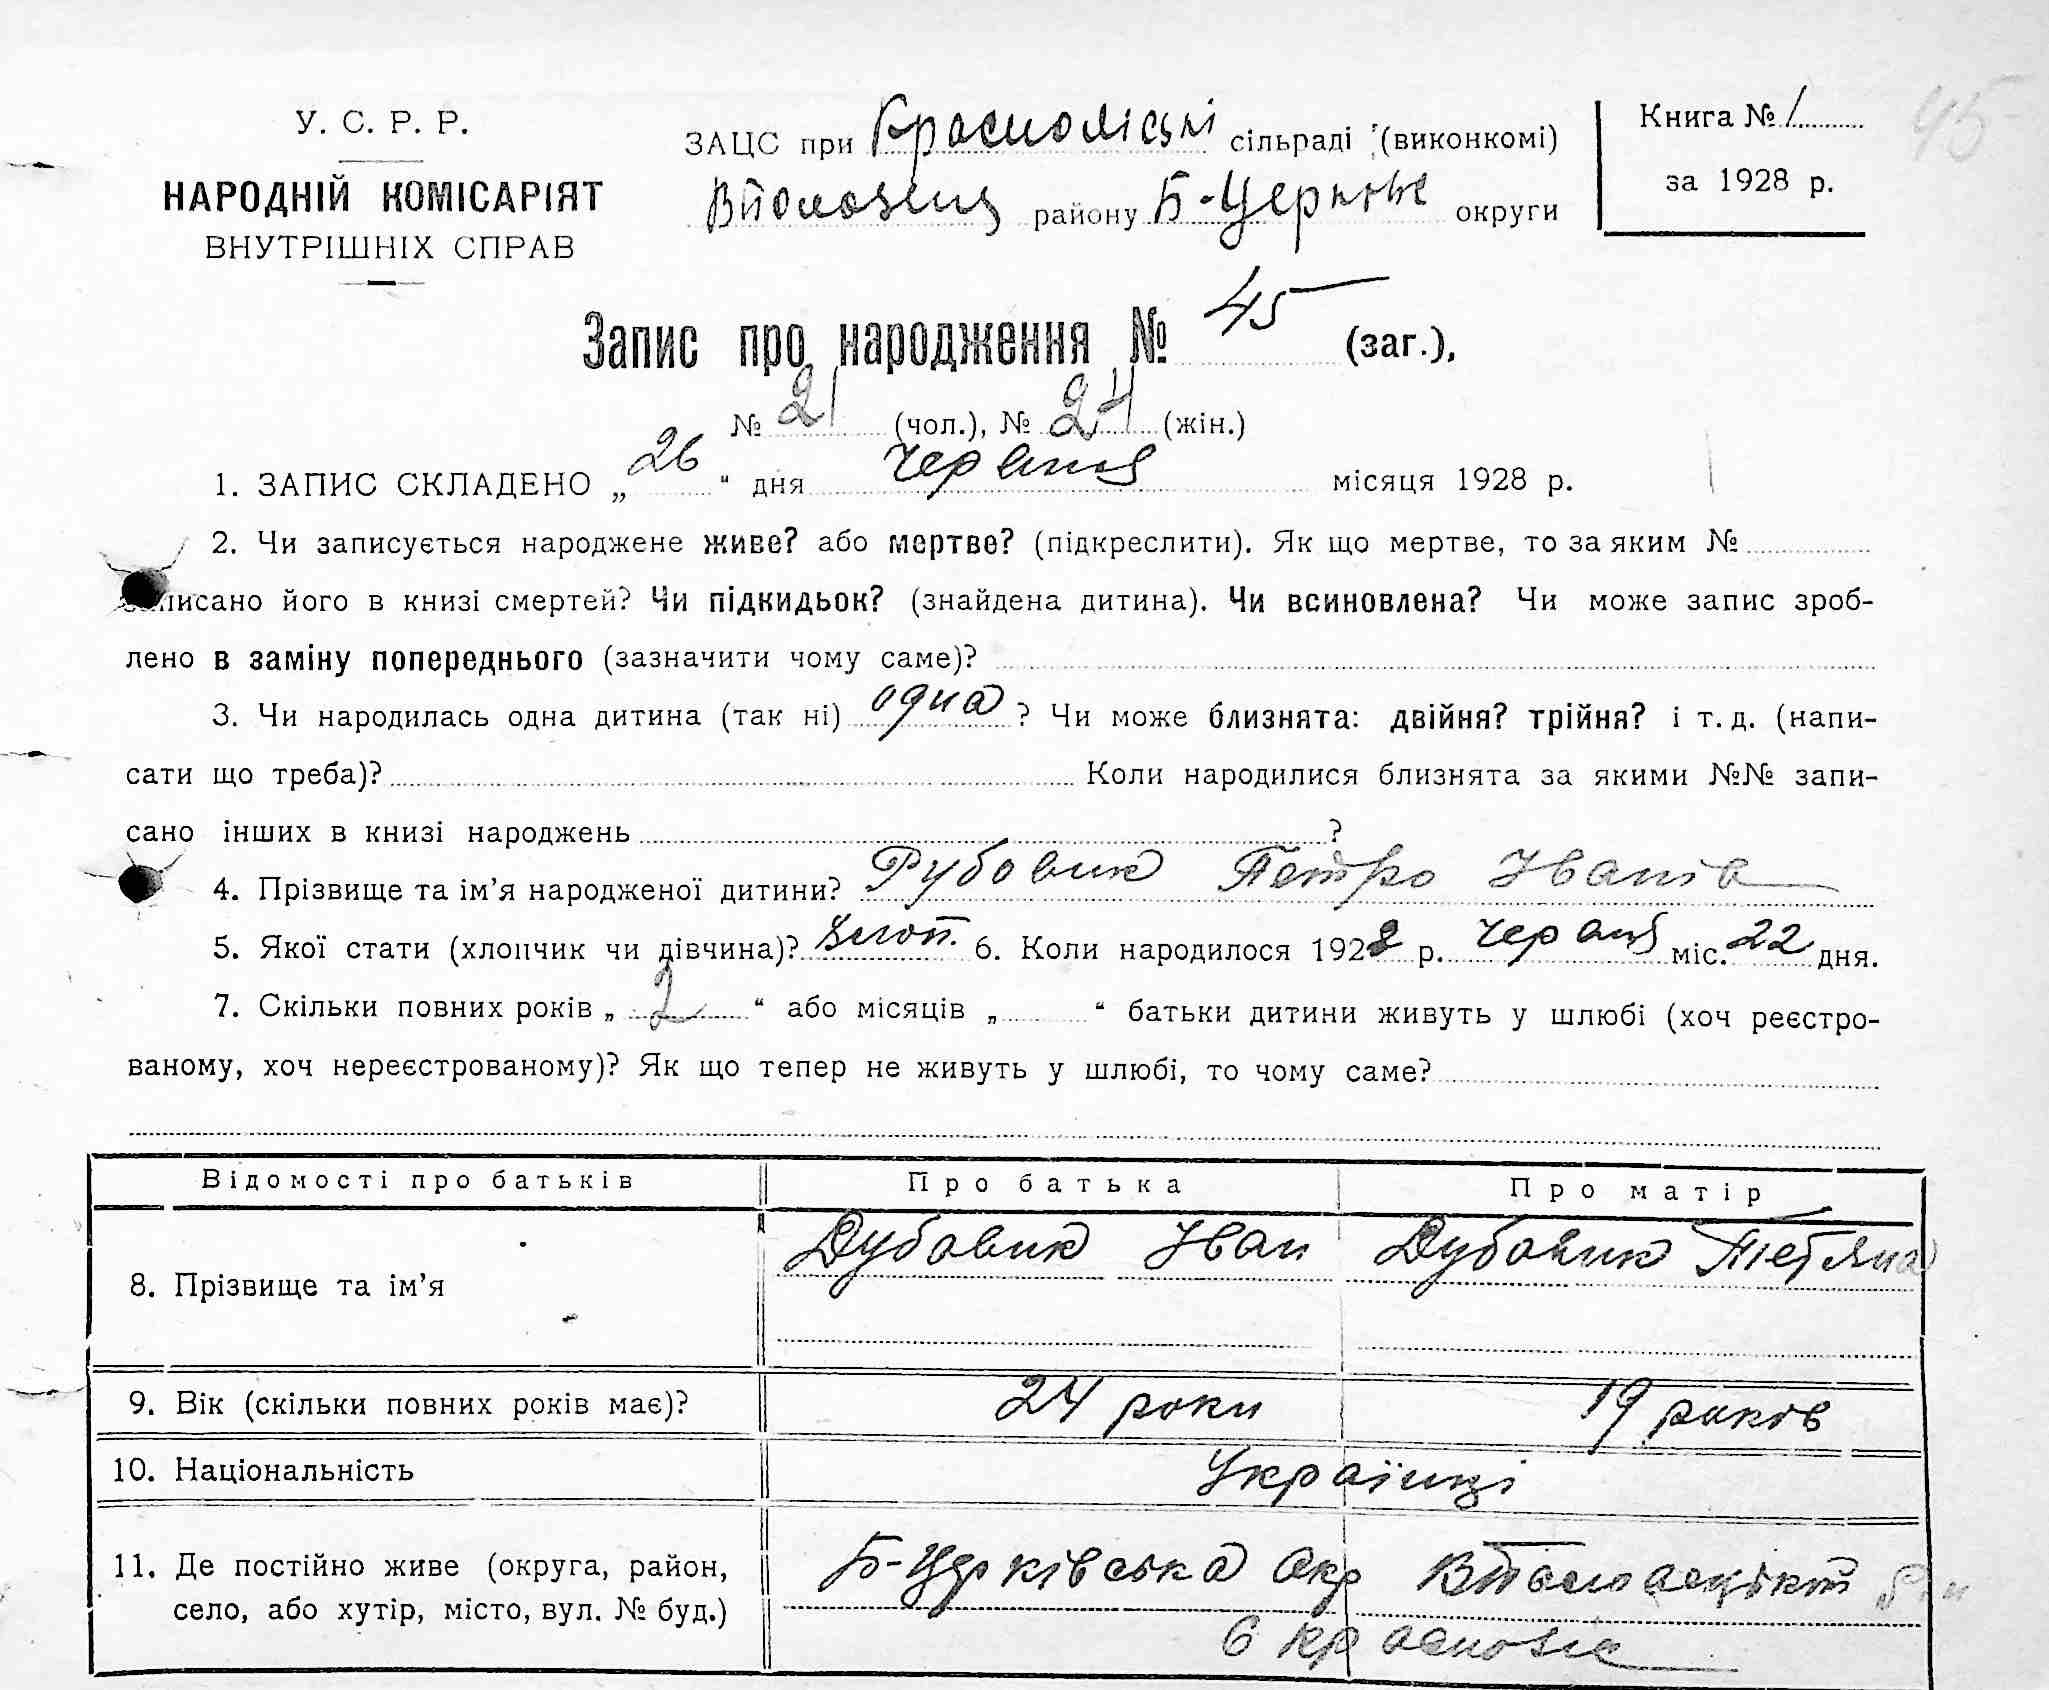 45
У. С. Р. Р.
НАРОДНІЙ КОМІСАРІЯТ
ВНУТРІШНІХ СПРАВ
ЗАЦС при Краснолісці сільраді (виконкомі)
району Б-Церков округи
Книга № 1
за 1928 р.
Запис про народження № 45 (заг.),
№ 21 (чол.), № 24 (жін.)
1. ЗАПИС СКЛАДЕНО „26“ дня червня місяця 1928 р.
2. Чи записується народжене живе? або мертве? (підкреслити). Як що мертве, то за яким №
записано його в книзі смертей? Чи підкидьок? (знайдена дитина). Чи всиновлена? Чи може запис зроб-
лено в заміну попереднього (зазначити чому саме)?
3. Чи народилась одна дитина (так ні) одна ? Чи може близнята: двійня? трійня? і т. д. (напи-
сати що треба)? Коли народилися близнята за якими №№ запи-
сано інших в книзі народжень ?
4. Прізвище та ім’я народженої дитини? Дубовик Петро Іванів
5. Якої стати (хлопчик чи дівчина)? хлоп. 6. Коли народилося 1928 р. червня міс. 22 дня.
7. Скільки повних років „ 2 “ або місяців „ “ батьки дитини живуть у шлюбі (хоч реєстро-
ваному, хоч нереєстрованому)? Як що тепер не живуть у шлюбі, то чому саме?
Відомості про батьків Про батька Про матір
8. Прізвище та ім’я Дубовик Іван Дубовик Тетяна
9. Вік (скільки повних років має)? 24 роки 19 років
10. Національність Українці
11. Де постійно живе (округа, район, Б-Церківська окр
село, або хутір, місто, вул. № буд.)